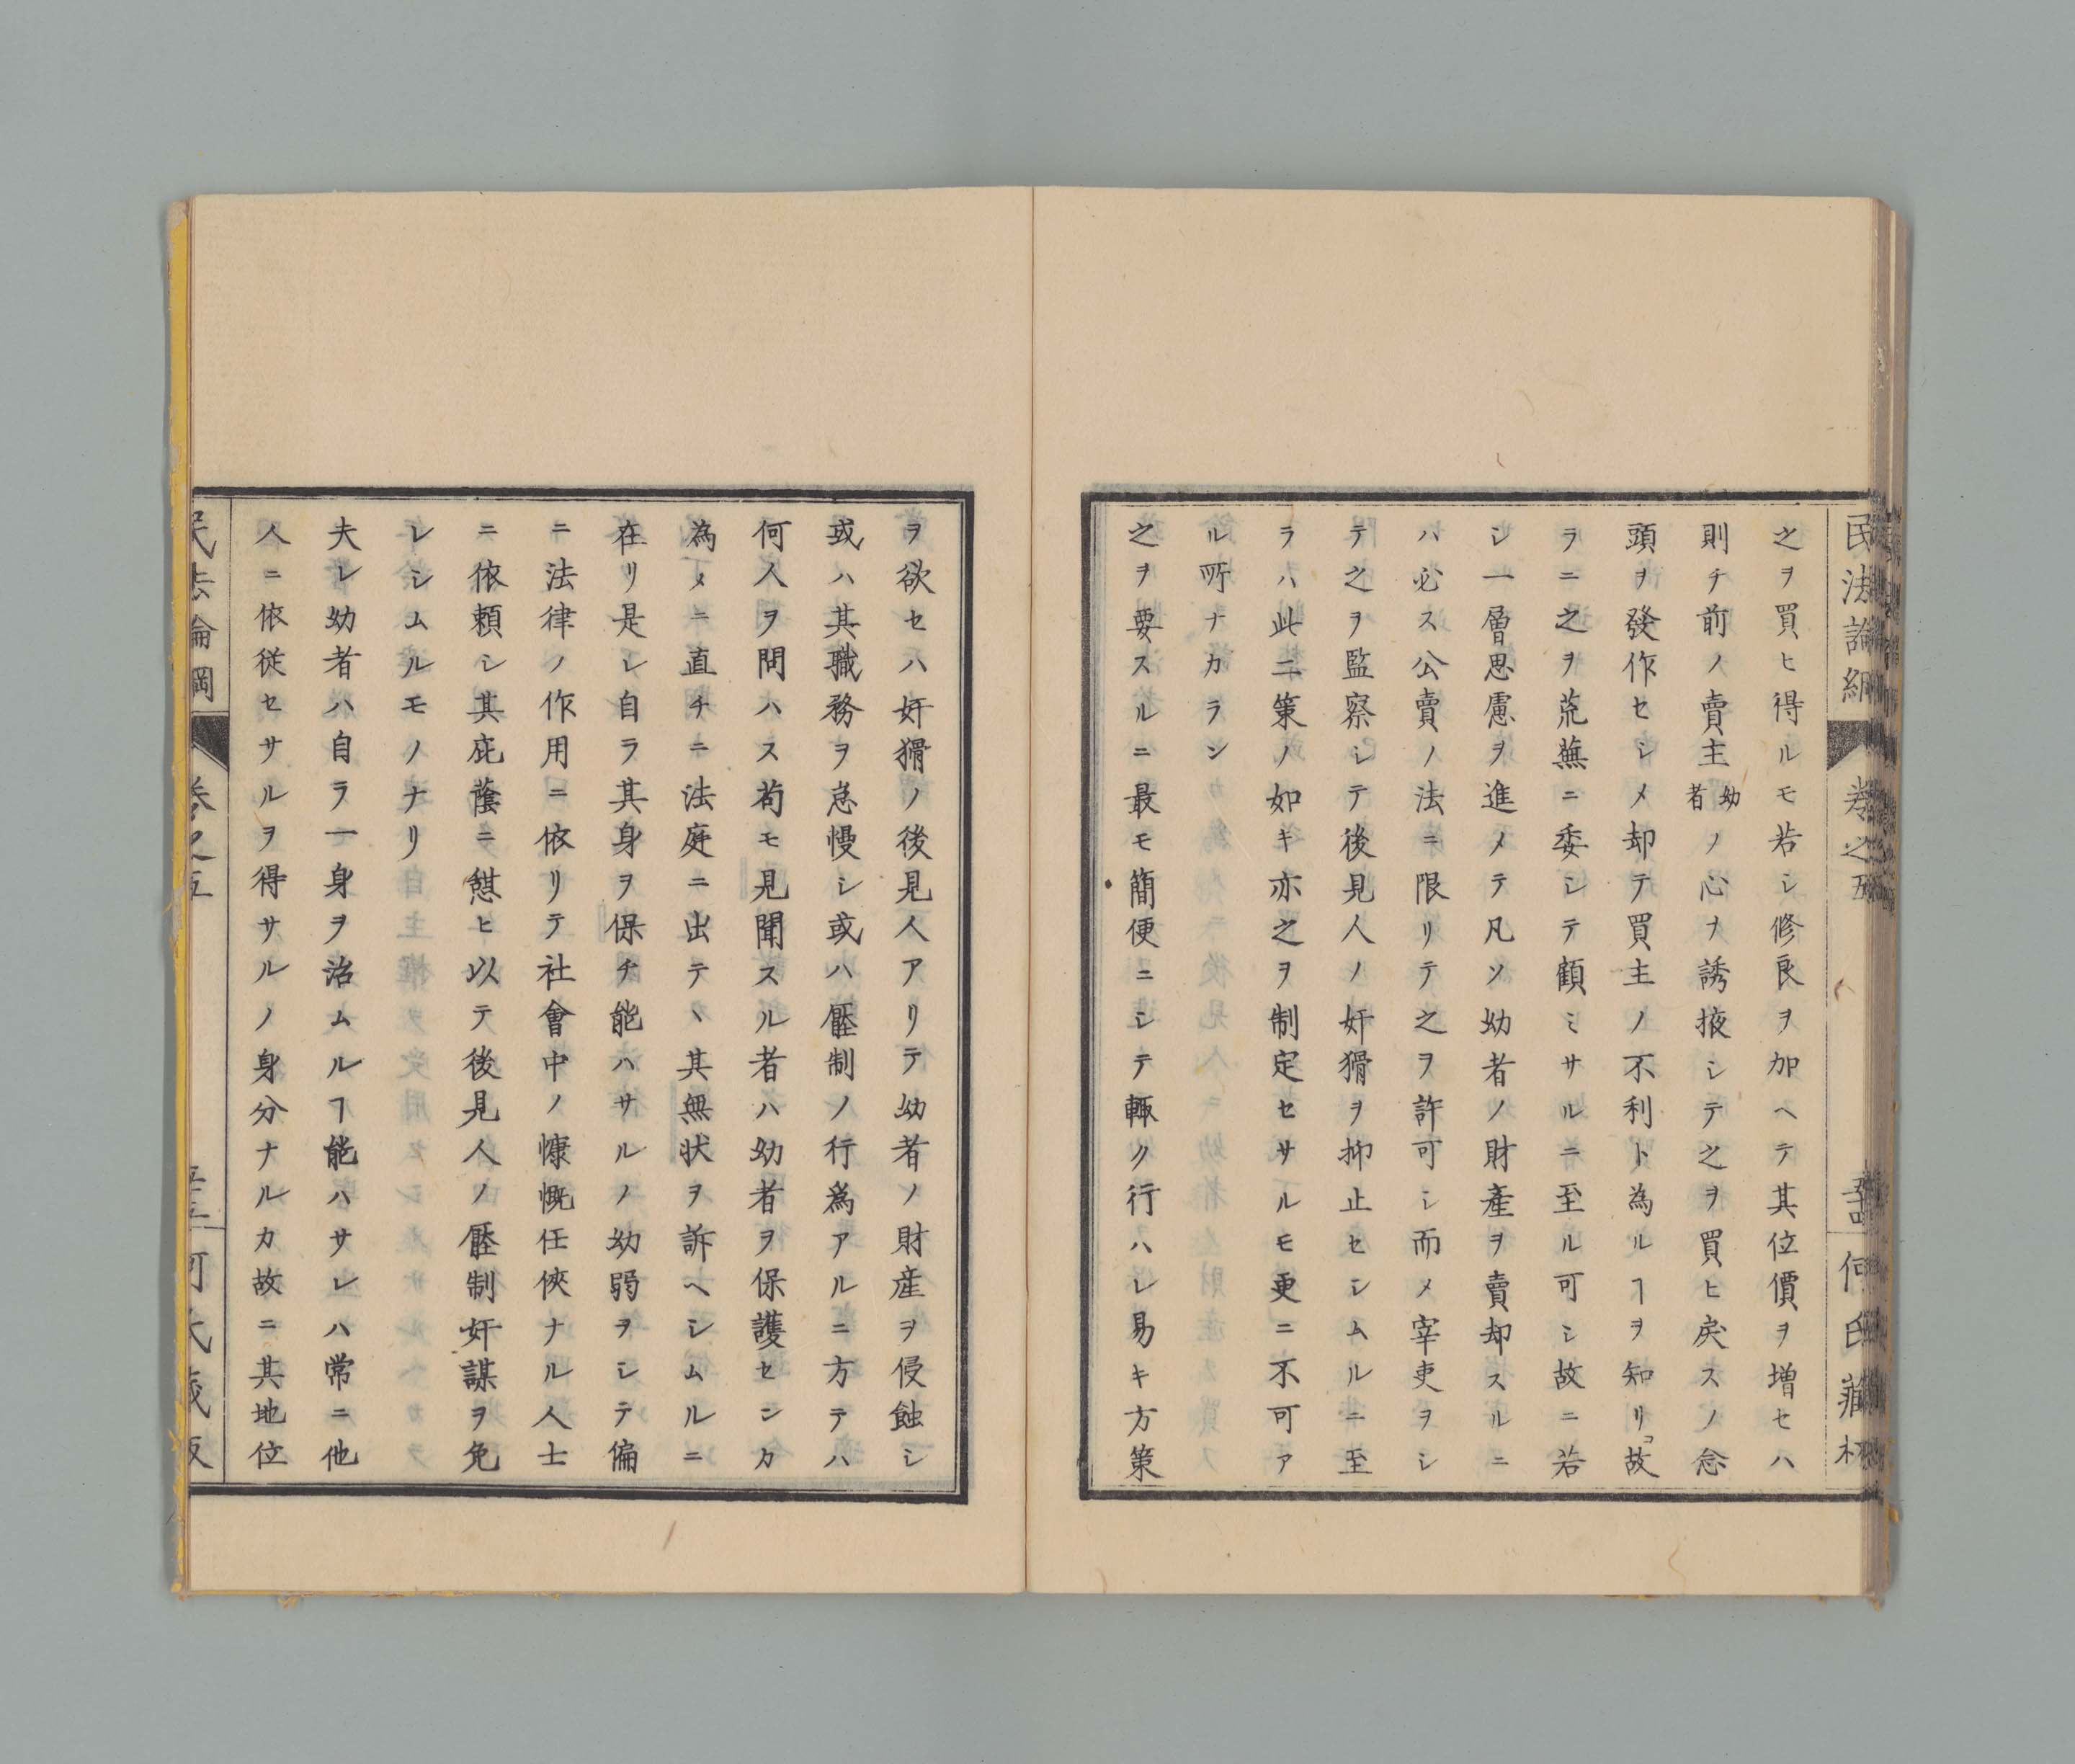 民法論綱
卷之五
何氏藏板
之ヲ買ヒ得ルモ若シ修良ヲ加ヘテ其位價ヲ増セハ
則チ前ノ賣主幼者ノ心ナ誘掖シテ之ヲ買ヒ戻スノ念
頭ヲ發作セシメ却テ買主ノ不利ト為ルヿヲ知リ故
ラニ之ヲ荒蕪ニ委シテ顧ミサルニ至ル可シ故ニ若
シ一層思慮ヲ進メテ凡ソ幼者ノ財產ヲ賣却スルニ
ハ必ス公賣ノ法ニ限リテ之ヲ許可シ而メ宰吏ヲシ
テ之ヲ監察シテ後見人ノ奸猾ヲ抑止セシムルニ至
ラハ此二策ノ如キ亦之ヲ制定セサルモ更ニ不可ア
ル所ナカラン
之ヲ要スルニ最モ簡便ニシテ輙ク行ハレ易キ方策
ヲ欲セハ奸猾ノ後見人アリテ幼者ノ財産ヲ侵蝕シ
或ハ其職務ヲ怠慢シ或ハ壓制ノ行爲アルニ方テハ
何人ヲ問ハス苟モ見聞スル者ハ幼者ヲ保護センカ
為メニ直チニ法庭ニ出テヽ其無状ヲ訴ヘシムルニ
在リ是レ自ラ其身ヲ保チ能ハサルノ幼弱ヲシテ偏
ニ法律ノ作用ニ依リテ社會中ノ慷慨任俠ナル人士
ニ依頼シ其庇蔭ニ憇ヒ以テ後見人ノ壓制奸謀ヲ免
レシムルモノナリ
夫レ幼者ハ自ラ一身ヲ治ムルヿ能ハサレハ常ニ他
人ニ依從セサルヲ得サルノ身分ナルカ故ニ其地位
民法論綱
卷之五
何氏藏板